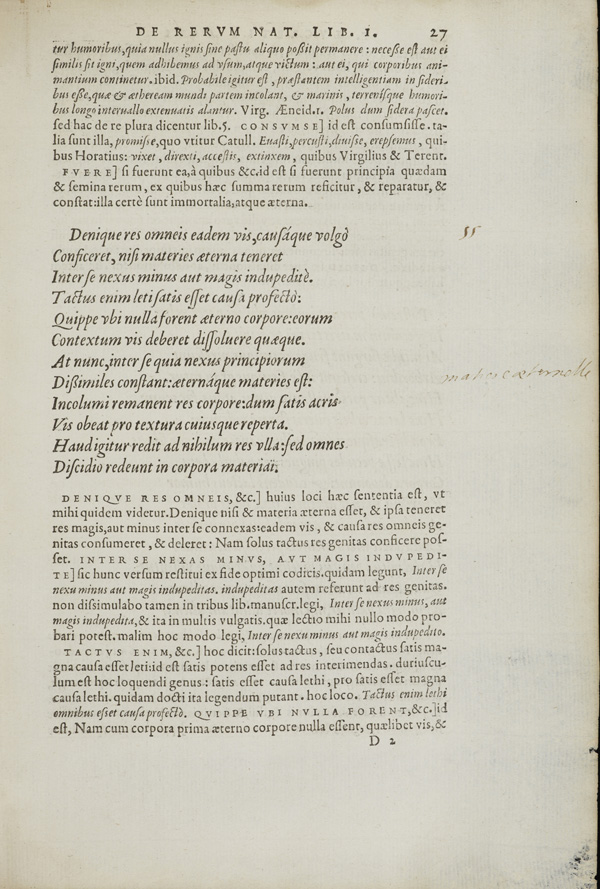 DE RERVM NAT. LIB. I. 27
tur humoribus, quia nullus ignis sine pastu aliquo poßit permanere : necesse est aut ei
similis sit igni, quem adhibemus ad vsum, atque victum : aut ei, qui corporibus ani-
mantium continetur. ibid. Probabile igitur est, præstantem intelligentiam in sideri-
bus esse, quæ & ætheream mundi partem incolant, & marinis, terrenísque humori-
bus longo interuallo extenuatis alantur. Virg. Æneid. 1. Polus dum sidera pascet.
sed hac de re plura dicentur lib. 5. CONSVMSE] id est consumsisse. ta-
lia sunt illa, promisse, quo vtitur Catull. Euasti, percusti, diuisse, erepsemus, qui-
bus Horatius: vixet, direxti, accestis, extinxem, quibus Virgilius & Terent.
FVERE] si fuerunt ea, à quibus &c. id est si fuerunt principia quædam
& semina rerum, ex quibus hæc summa rerum reficitur, & reparatur, &
constat: illa certè sunt immortalia, atque æterna.
Denique res omneis eadem vis, causáque volgò
55
Conficeret, nisi materies æterna teneret
Inter se nexus minus aut magis indupeditè.
Tactus enim leti satis esset causa profectò:
Quippe vbi nulla forent æterno corpore: eorum
Contextum vis deberet dissoluere quæque.
At nunc, inter se quia nexus principiorum
Dißimiles constant: æternáque materies est:
matiere æternelle
Incolumi remanent res corpore: dum satis acris
Vis obeat pro textura cuiusque reperta.
Haud igitur redit ad nihilum res vlla: sed omnes
Discidio redeunt in corpora materiaï.
DENIQVE RES OMNEIS, &c.] huius loci hæc sententia est, vt
mihi quidem videtur. Denique nisi & materia æterna esset, & ipsa teneret
res magis, aut minus inter se connexas: eadem vis, & causa res omneis ge-
nitas consumeret, & deleret: Nam solus tactus res genitas conficere pos-
set. INTER SE NEXAS MINVS, AVT MAGIS INDVPEDI-
TE] sic hunc versum restitui ex fide optimi codicis. quidam legunt, Inter se
nexu minus aut magis indupeditas. indupeditas autem referunt ad res genitas.
non dissimulabo tamen in tribus lib. manuscr. legi, Inter se nexus minus, aut
magis indupedita, & ita in multis vulgatis. quæ lectio mihi nullo modo pro-
bari potest. malim hoc modo legi, Inter se nexu minus aut magis indupedito.
TACTVS ENIM, &c.] hoc dicit: solus tactus, seu contactus satis ma-
gna causa esset leti: id est satis potens esset ad res interimendas. duriuscu-
lum est hoc loquendi genus: satis esset causa lethi, pro satis esset magna
causa lethi. quidam docti ita legendum putant. hoc loco. Tactus enim lethi
omnibus esset causa profectò. QVIPPE VBI NVLLA FORENT, &c.] id
est, Nam cum corpora prima æterno corpore nulla essent, quælibet vis, &
D 2